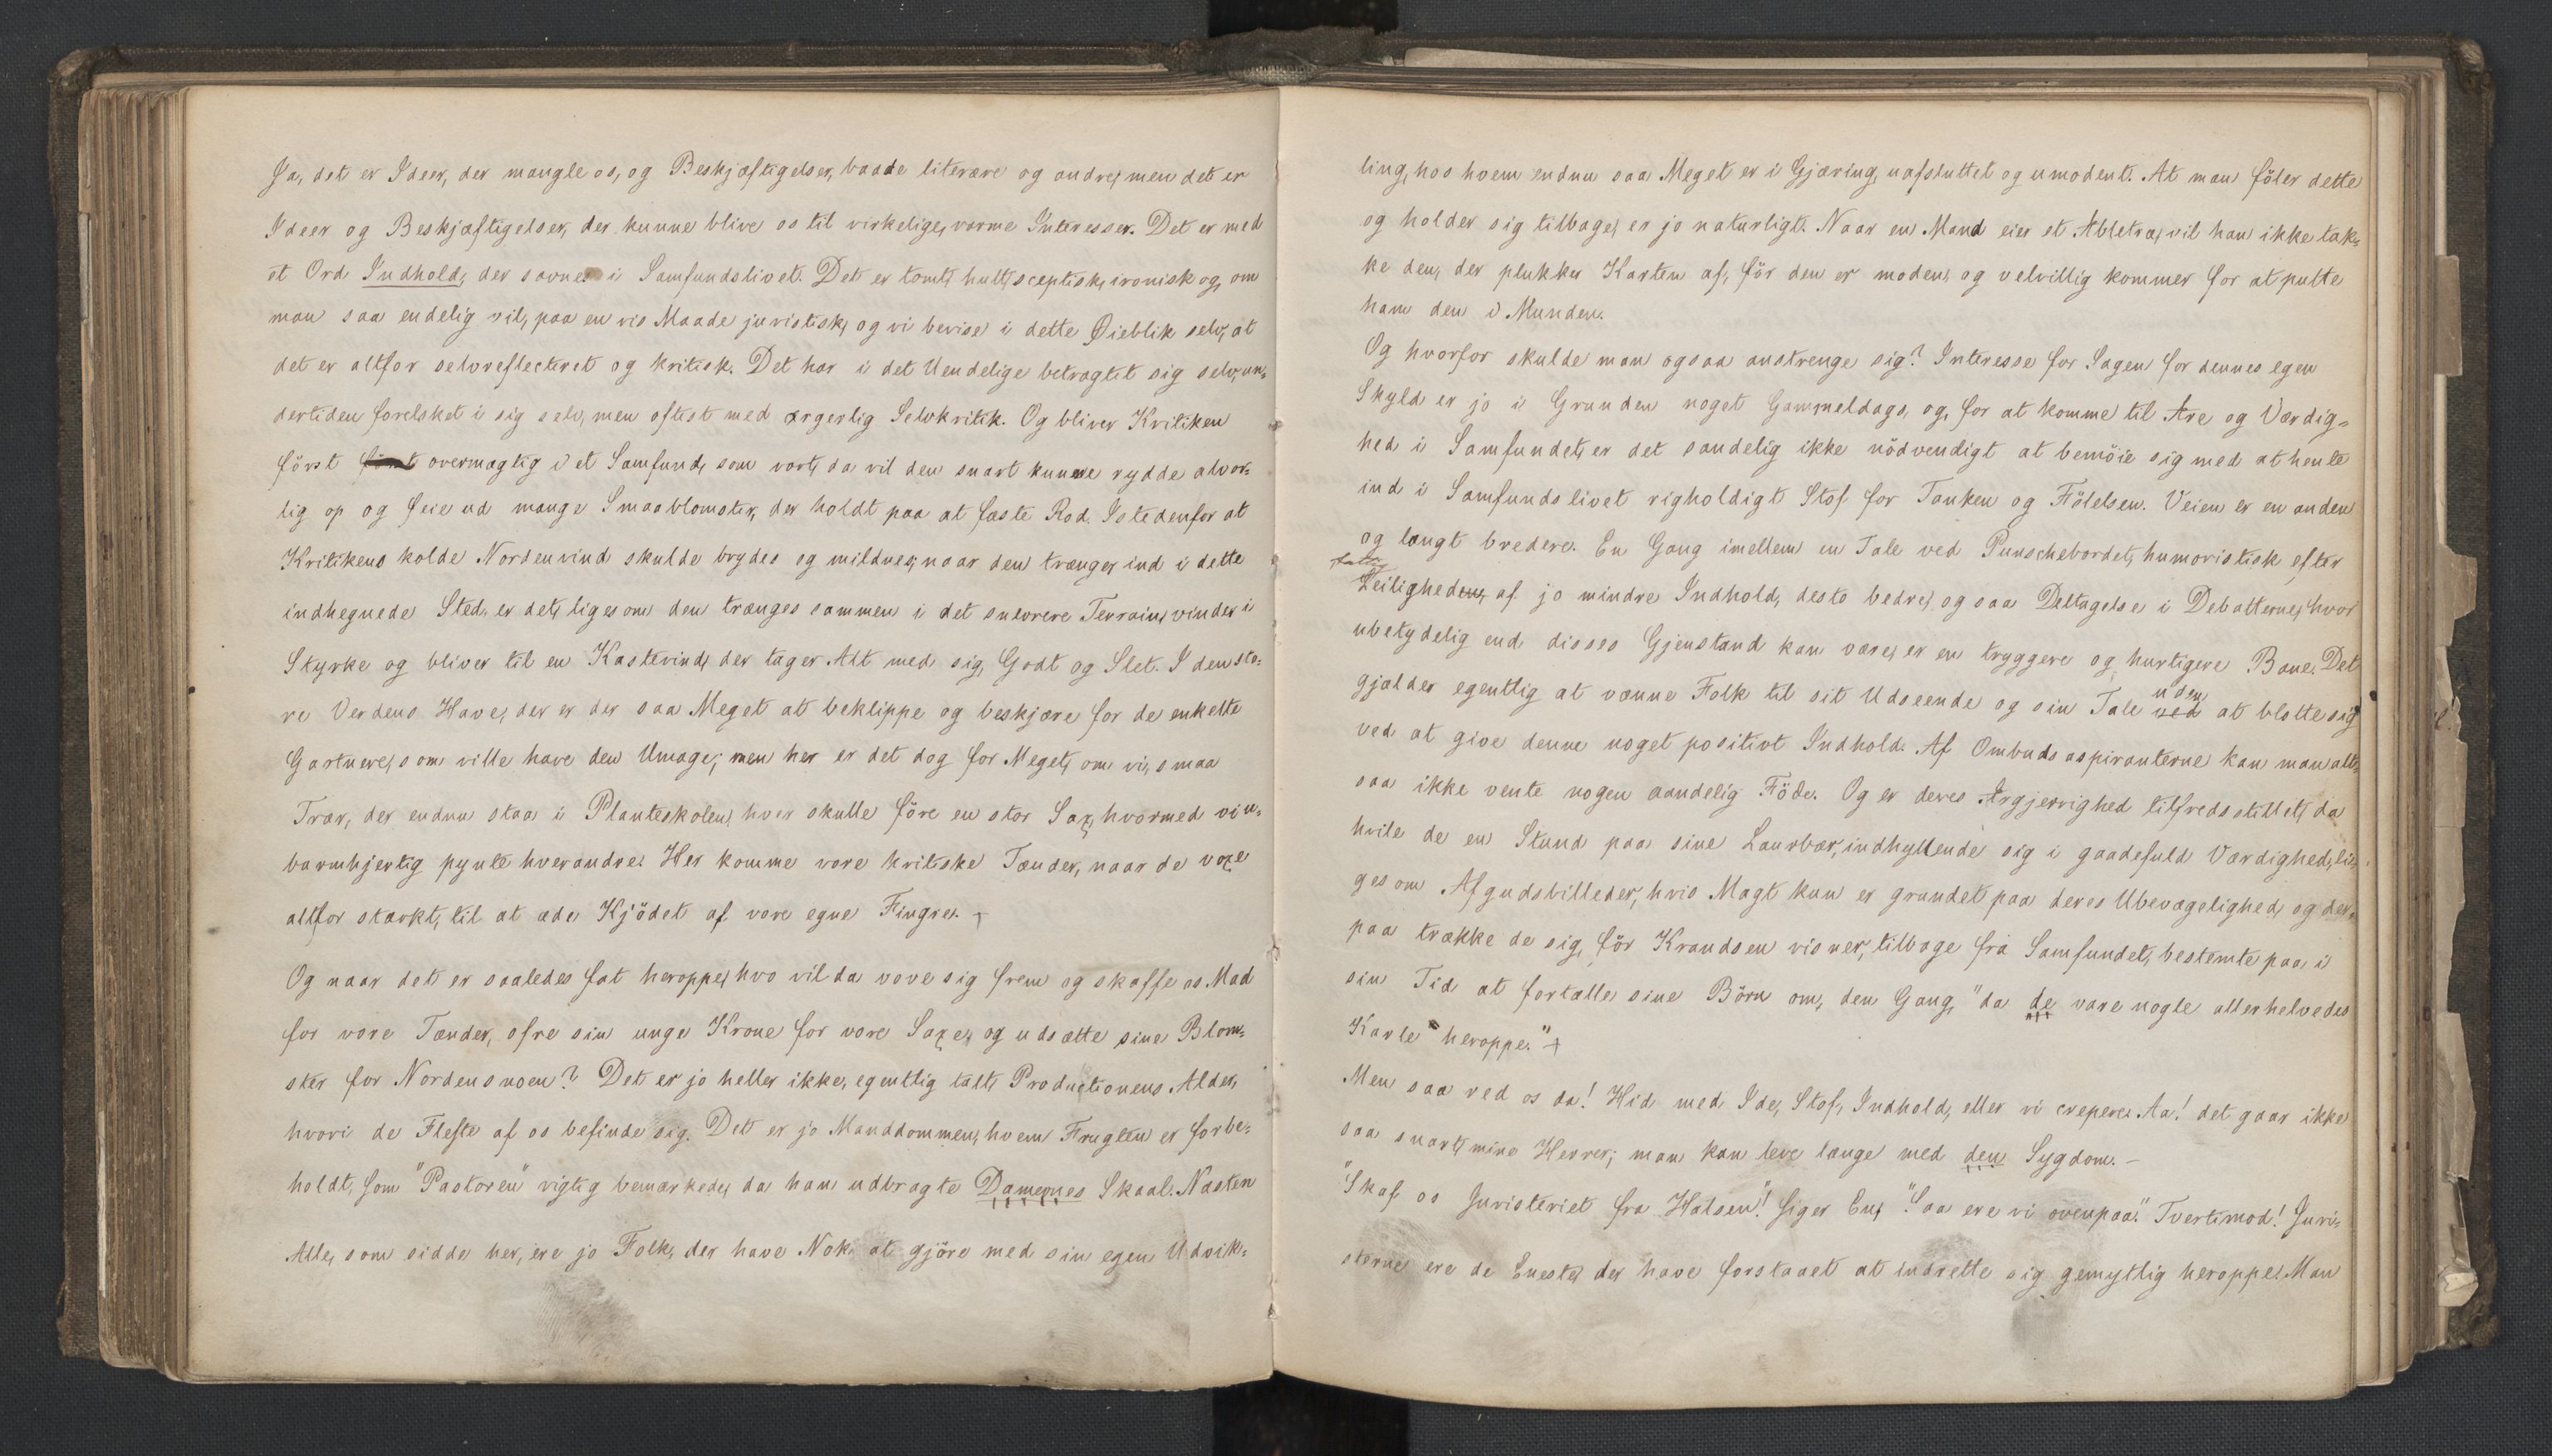 Ja, det er Ideer, der mangle os, og Beskjæftigelser, baade literære og andre, men det er
Ideer og Beskjæftigelser, der kunne blive os til virkelige, varme Interesser. Det er med
et Ord Indhold, der savnes i Samfundslivet. Det er tomt, hult, sceptisk, ironisk og, om
man saa endelig vil, paa en vis Maade juristisk, og vi bevise i dette Øieblik selv, at
det er altfor selvreflecteret og kritisk. Det har i det Uendelige betragtet sig selv, un-
dertiden forelsket i sig selv, men oftest med ærgerlig Selvkritik. Og bliver Kritiken
først overmægtig i et Samfund, som vort, da vil den snart kunne rydde alvor-
lig op og feie ud mange Smaablomster, der holdt paa at fæste Rod. Istedenfor at
Kritikens kolde Nordenvind skulde brydes og mildnes, naar den trænger ind i dette
indhegnede Sted, er det, ligesom den trænges sammen i det snevrere Terrain, vinder i
Styrke og bliver til en Kastevind, der tager Alt med sig, Godt og Slet. I den sto-
re Verdens Have, der er der saa Meget at beklippe og beskjære for de enkelte
Gartnere, som ville have den Umage; men her er det dog for Meget, om vi, smaa
Træer, der endnu staa i Planteskolen, hver skulle føre en stor Sax, hvormed vi u-
barmhjertig pynte hverandre. Her komme vore kritiske Tænder, naar de voxe
altfor stærkt, til at æde Kjødet af vore egne Fingre. +
Og naar det er saaledes fat heroppe, hvo vil da vove sig frem og skaffe os Mad
for vore Tænder, ofre sin unge Krone for vore Saxe, og udsætte sine Blom-
ster for Nordensnoen? Det er jo heller ikke, egentlig talt, Productionens Alder,
hvori de Fleste af os befinde sig. Det er jo Manddommen, hvem Frugten er forbe-
holdt, som "Pastoren" vigtig bemærkede, da han udbragte Damernes Skaal. Næsten
Alle, som sidde her, ere jo Folk, der have Nok at gjøre med sin egen Udvik-
ling, hos hvem endnu saa Meget er i Gjæring, uafsluttet og umodent. At man føler dette
og holder sig tilbage, er jo naturligt. Naar en Mand eier et Æbletræ, vil han ikke tak-
ke den, der plukker Karten af, før den er moden, og velvillig kommer for at putte
ham den i Munden.
Og hvorfor skulde man ogsaa anstrenge sig? Interesse for Sagen for dennes egen
Skyld er jo i Grunden noget Gammeldags, og, for at komme til Ære og Værdig-
hed i Samfundet, er det sandelig ikke nødvendigt at bemøie sig med at hente
ind i Samfundslivet righoldigt Stof for Tanken og Følelsen. Veien er en anden
og langt bredere. En Gang imellem en Tale ved Punschebordet, humoristisk efter
Leiligheden, af jo mindre Indhold, desto bedre, og saa Deltagelse i Debatterne, hvor
ubetydelig end disses Gjenstand kan være, er en tryggere og hurtigere Bane. Det
gjælder egentlig at vænne Folk til sit Udseende og sin Tale ved uden at blotte sig
ved at give denne noget positivt Indhold. Af Ombudsaspiranterne kan man alt-
saa ikke vente nogen aandelig Føde. Og er deres Ærgjerrighed tilfredsstillet, da
hvile de en Stund paa sine Laurbær, indhyllende sig i gaadefuld Værdighed, li-
gesom Afgudsbilleder, hvis Magt kun er grundet paa deres Ubevægelighed, og der-
paa trække de sig, før Krandsen visner, tilbage fra Samfundet, bestemte paa i
sin Tid at fortælle sine Børn om, den Gang, "da de vare nogle allerhelvedes
Karle heroppe." +
Men saa red os da! Hid med Ide, Stof, Indhold, eller vi crepere. Aa! det gaar ikke
saa snart, mine Herrer; man kan leve længe med den Sygdom. –
"Skaf os Juristeriet fra Halsen"! siger En, "Saa ere vi ovenpaa." Tvertimod! Juri-
sterne ere de Eneste, der have forstaaet at indrette sig gemytlig heroppe. Man